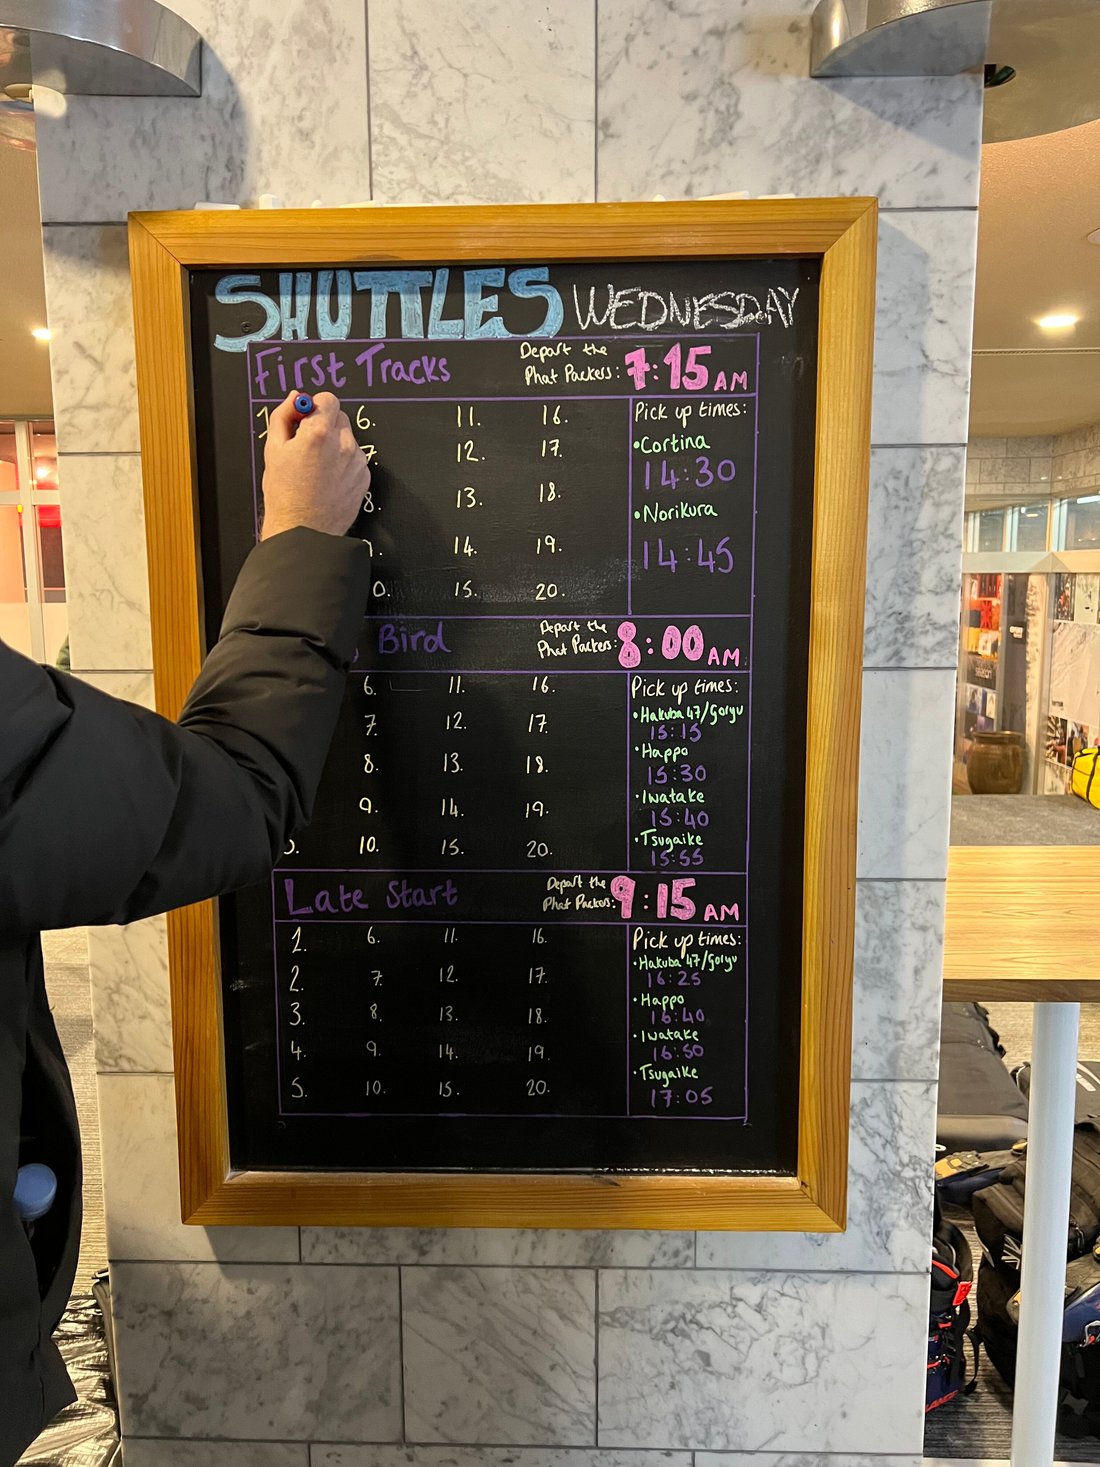 SHUTTLES WEDNESDAY
First Tracks
Depart the
Phat Packers: 7:15 AM
1. 6. 11. 16.
7. 12. 17.
8. 13. 18.
14. 19.
15. 20.
Pick up times:
•Cortina
14:30
•Norikura
14:45
Bird
Depart the
Phat Packers: 8:00 AM
6. 11. 16.
7. 12. 17.
8. 13. 18.
9. 14. 19.
10. 15. 20.
Pick up times:
•Hakuba 47/Goryu
15:15
•Happo
15:30
•Iwatake
15:40
•Tsugaike
15:55
Late Start
Depart the
Phat Packers: 9:15 AM
1. 6. 11. 16.
2. 7. 12. 17.
3. 8. 13. 18.
4. 9. 14. 19.
5. 10. 15. 20.
Pick up times:
•Hakuba 47/Goryu
16:25
•Happo
16:40
•Iwatake
16:50
•Tsugaike
17:05